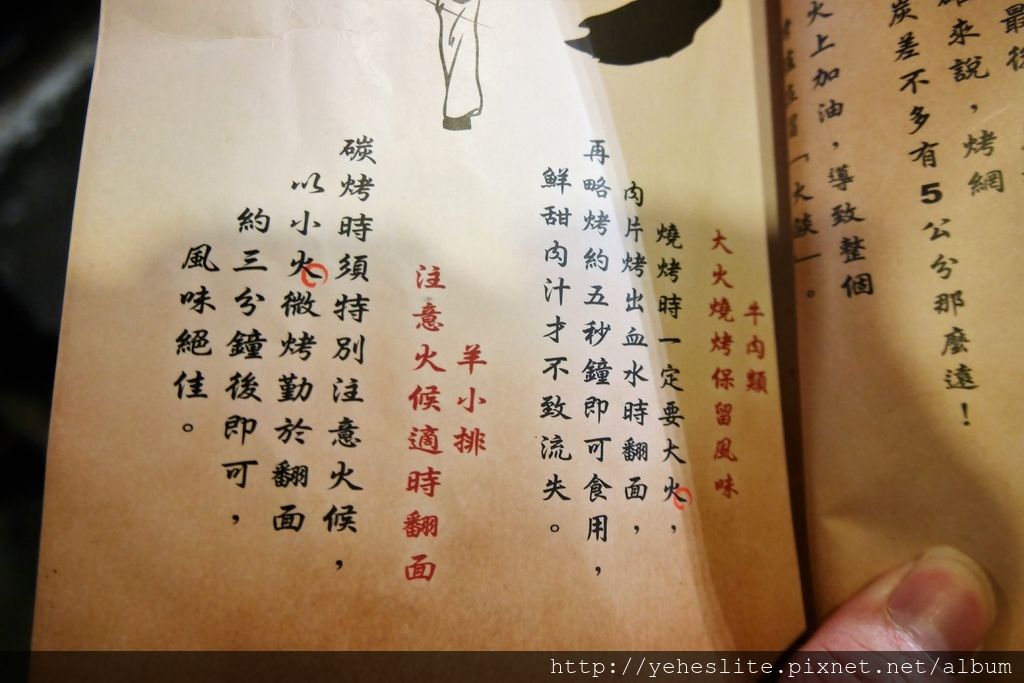 最後
確來說，烤網
炭差不多有5公分那麼遠！
火上加油，導致整個
「火燄」。
牛肉類
大火燒烤保留風味
燒烤時一定要大火，
肉片烤出血水時翻面，
再略烤約五秒鐘即可食用，
鮮甜肉汁才不致流失。
羊小排
注意火候適時翻面
碳烤時須特別注意火候，
以小火微烤勤於翻面
約三分鐘後即可，
風味絕佳。
http://yeheslite.pixnet.net/album